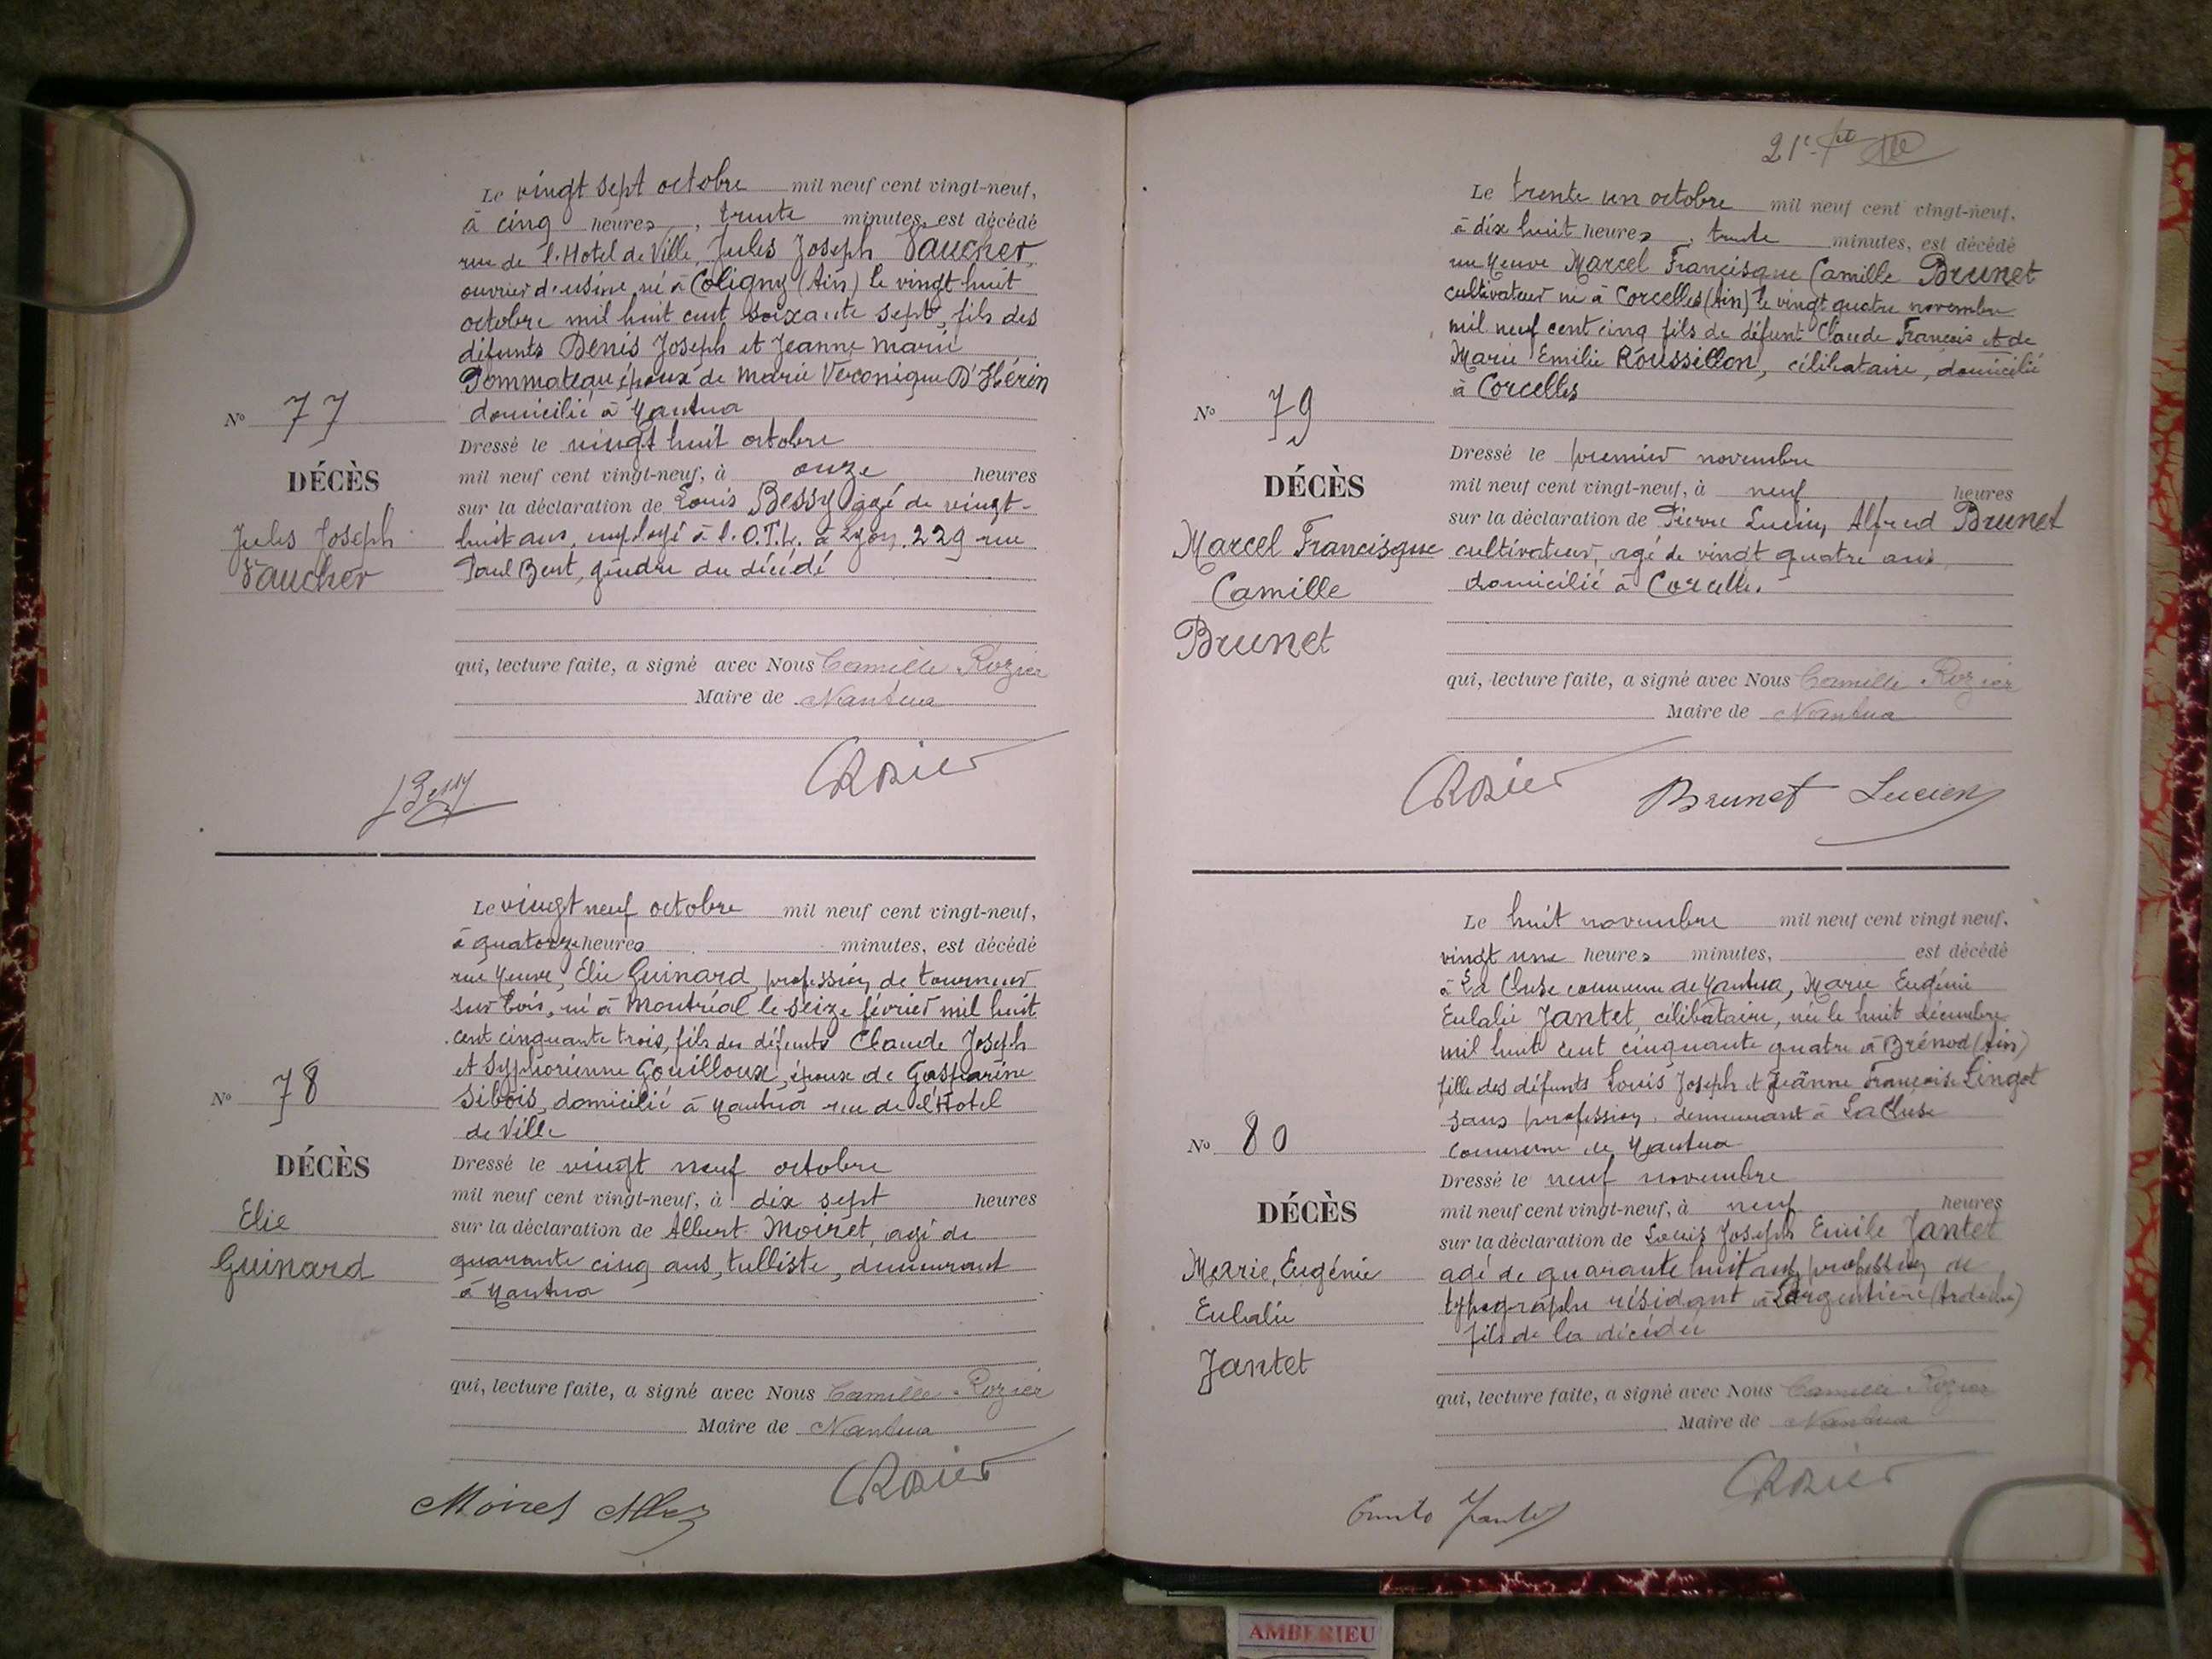 Le vingt sept octobre mil neuf cent vingt-neuf,
à cinq heures, trente minutes, est décédé
rue de l'Hotel de Ville, Jules Joseph Vaucher,
ouvrier d'usine, né à Coligny (Ain) le vingt huit
octobre mil huit cent soixante sept, fils des
défunts Denis Joseph et Jeanne Marie
Pommateau, époux de Marie Véronique D'Hérin
domicilié à Nantua
No 77
Dressé le vingt huit octobre
DÉCÈS
mil neuf cent vingt-neuf, à onze heures
sur la déclaration de Louis Bessy agé de vingt-
Jules Joseph
huit ans, employé à l'O.T.L. à Lyon, 229 rue
Vaucher
Paul Bert, gendre du décédé
qui, lecture faite, a signé avec Nous Camille Rozier
Maire de Nantua
LBessy
CRozier
Le vingt neuf octobre mil neuf cent vingt-neuf,
à quatorze heures minutes, est décédé
rue Neuve, Elie Guinard, profession de tourneur
sur bois, né à Montréal le seize février mil huit
cent cinquante trois, fils des défunts Claude Joseph
et Syphorienne Gouilloux, époux de Gasparine
Sibois, domicilié à Nantua rue de l'Hotel
de Ville
No 78
Dressé le vingt neuf octobre
DÉCÈS
mil neuf cent vingt-neuf, à dix sept heures
Elie
sur la déclaration de Albert Moiret, agé de
Guinard
quarante cinq ans, tulliste, demeurant
à Nantua
qui, lecture faite, a signé avec Nous Camille Rozier
Maire de Nantua
CRozier
Moiret
21e
Le trente un octobre mil neuf cent vingt-neuf,
à dix huit heures, trente minutes, est décédé
rue Neuve Marcel Francisque Camille Brunet
cultivateur né à Corcelles (Ain) le vingt quatre novembre
mil neuf cent cinq fils de défunt Claude François et de
Marie Emilie Roussillon, célibataire, domicilié
à Corcelles
No 79
Dressé le premier novembre
DÉCÈS
mil neuf cent vingt-neuf, à neuf heures
sur la déclaration de Pierre Lucien Alfred Brunet
Marcel Francisque
cultivateur, agé de vingt quatre ans
Camille
domicilié à Corcelles
Brunet
qui, lecture faite, a signé avec Nous Camille Rozier
Maire de Nantua
CRozier
Brunet Lucien
Le huit novembre mil neuf cent vingt neuf,
vingt une heures minutes, est décédé
à La Cluse commune de Nantua, Marie Eugénie
Eulalie Jantet, célibataire, née le huit décembre
mil huit cent cinquante quatre à Brénod (Ain)
fille des défunts Louis Joseph et Jeanne Françoise Lingot
sans profession, demeurant à La Cluse
commune de Nantua
No 80
Dressé le neuf novembre
DÉCÈS
mil neuf cent vingt-neuf, à neuf heures
sur la déclaration de Louis Joseph Emile Jantet
Marie, Eugénie
agé de quarante huit ans, profession de
Eulalie
typographe résidant à Largentière (Ardèche)
Jantet
fils de la décédée
qui, lecture faite, a signé avec Nous Camille Rozier
Maire de Nantua
CRozier
Jantet
AMBERIEU